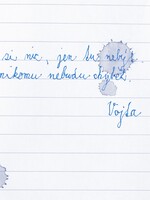 si nic, jen tu nebýt.
nikomu nebudu chybět.
Vojta